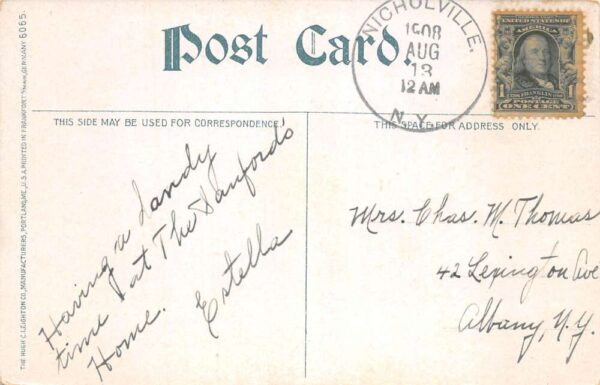 Post Card.
NICHOLVILLE,
1908
AUG
13
12 AM
N.Y.
UNITED STATES OF
AMERICA
1 FRANKLIN 1
POSTAGE
ONE CENT
THIS SIDE MAY BE USED FOR CORRESPONDENCE.
THIS SPACE FOR ADDRESS ONLY.
Having a dandy
time at The Sanford's
Home. Estella
Mrs. Chas. M. Thomas
42 Lexington Ave
Albany, N.Y.
THE HUGH C. LEIGHTON CO., MANUFACTURERS, PORTLAND, ME., U.S.A. PRINTED IN FRANKFORT GERMANY 6065.